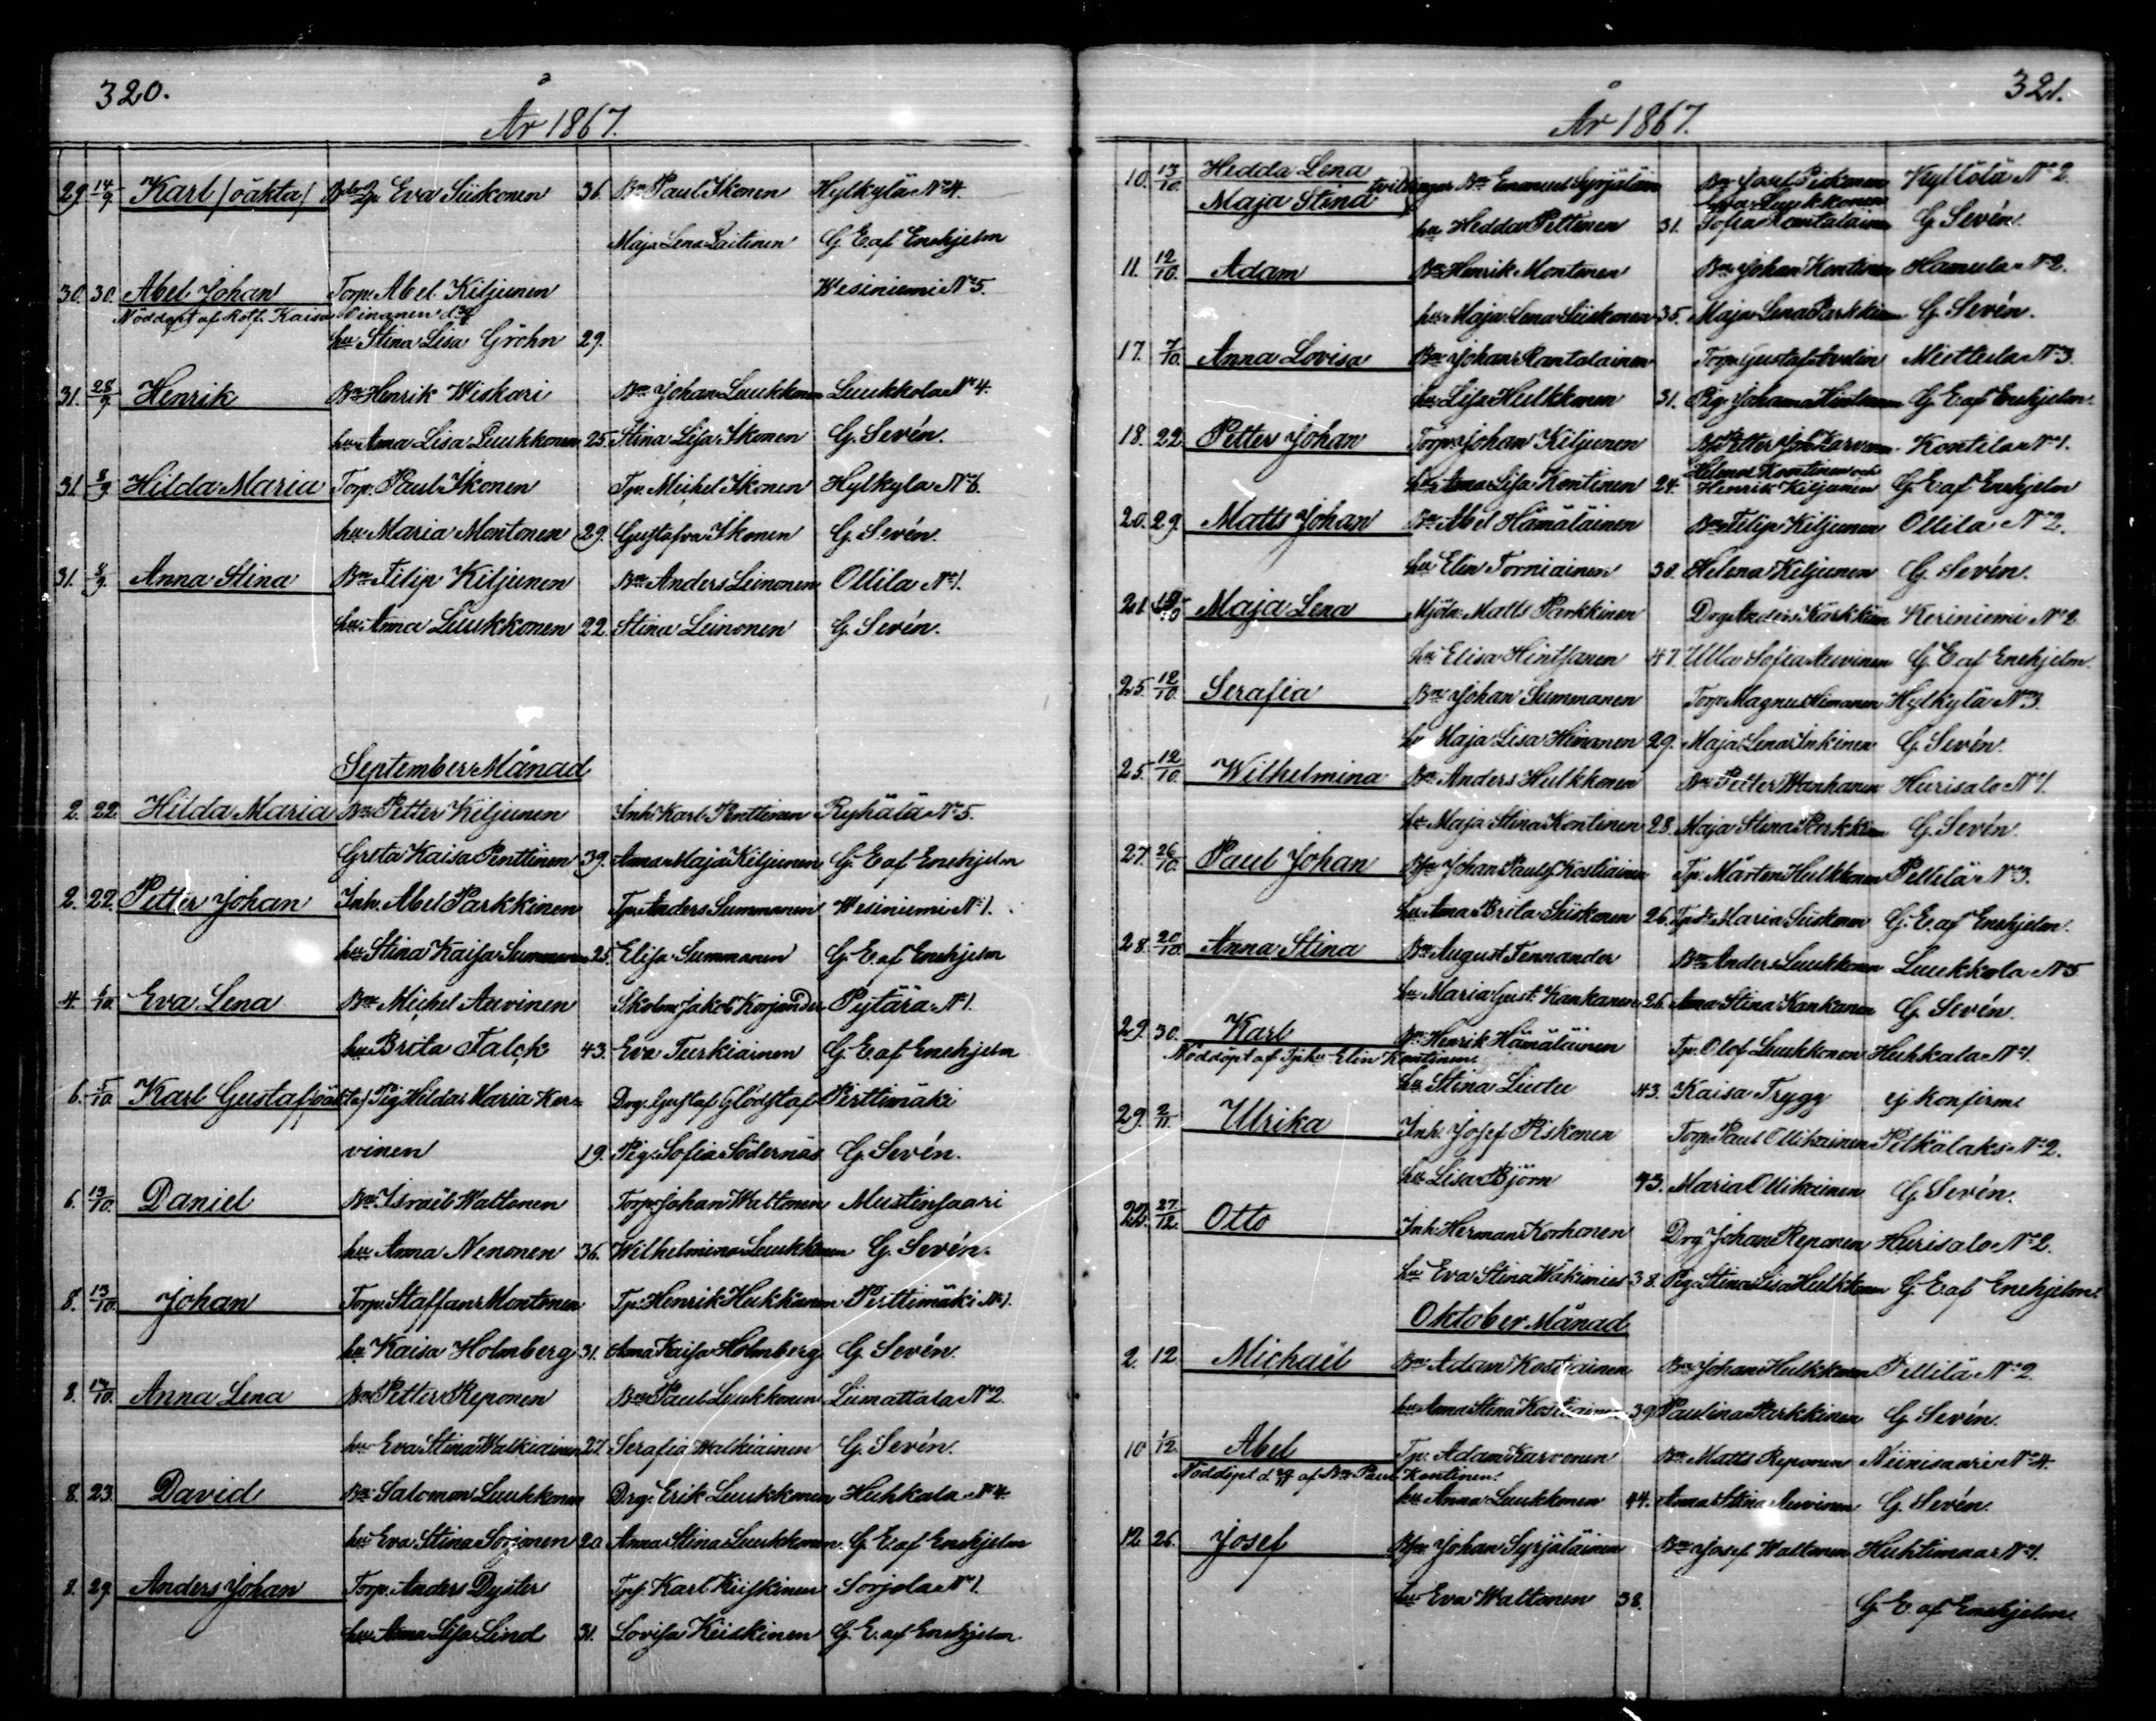 320.
År 1867.
29. 14/9 Karl (oäkta) Eva Siiskonen 36. Bn Paul Ikonen Hylkylä No 4.
Maja Lena Laitinen G. E. af Enehjelm
30. 30. Abel Johan Torp. Abel Kiljunen Wesiniemi No 5.
Nöddöpt af Kaisa Oinanen
hu Stina Lisa Gröhn 29.
31. 28/9 Henrik Bn Henrik Wiskari Bn Johan Luukkonen Luukkola No 4.
hu Anna Lisa Luukkonen 25. Stina Lisa Ikonen G. Sevén.
31 8/9 Hilda Maria Torp. Paul Ikonen Tp. Michel Ikonen Hylkylä No 6.
hu Maria Montonen 29. Gustafva Ikonen G. Sevén.
31. 8/9. Anna Stina Bn Filip Kiljunen Bn Anders Leinonen Ollila No 1.
hu Anna Luukkonen 22. Stina Leinonen G. Sevén.
September Månad
2. 22. Hilda Maria Bn Petter Kiljunen Inh. Karl Penttinen Ryhälä No 5.
Greta Kaisa Penttinen 39. Anna Maja Kiljunen G. E. af Enehjelm
2. 22. Petter Johan Inh. Abel Parkkinen Tp. Anders Summanen Wesiniemi No 1.
hu Stina Kaisa Summanen 25. Elisa Summanen G. E. af Enehjelm
4. 6/10. Eva Lena Bn Michel Auvinen Skolm. Jakob Korjander Pytärä No 1.
hu Brita Falck 43. Eva Turkiainen G. E. af Enehjelm
6. /10 Karl Gustaf (oäkta) Pig. Hilda Maria Ker- Drg. Gustaf Glödstaf Pirttimäki
vinen 19. Pig. Sofia Södernäs G. Sevén.
6. 13/10. Daniel Bn Israël Waltonen Torp. Johan Waltonen Mustinsaari
hu Anna Nenonen 36. Wilhelmina Luukkonen G. Sevén.
8. 13/10. Johan Torp. Staffan Montonen Tp. Henrik Hukkanen Pirttimäki No 1.
hu Kaisa Holmberg 31. Anna Kaisa Holmberg G. Sevén.
8. /10. Anna Lena Bn Petter Reponen Bn Paul Luukkonen Liimattala No 2.
hu Eva Stina Walkiainen 27. Serafia Walkiainen G. Sevén.
8. 23. David Bn Salomon Luukkonen Drg. Erik Luukkonen Huhkala No 4.
hu Eva Stina Sorjonen 20. Anna Stina Luukkonen G. E. af Enehjelm
8. 29. Anders Johan Torp. Anders Dyster Karl Kiiskinen Sorjola No 1.
hu Anna Lisa Lind 31. Lovisa Kiiskinen G. E. af Enehjelm
321.
År 1867.
10. 13/10. Hedda Lena tvillingar Bn Emanuel Syrjälain Bn Josef Piskonen Kyllölä No 2.
Maja Stina Eva Luukkonen
hu Hedda Pettinen 31. Sofia Rantalainen G. Sevén.
11. 12/10. Adam Bn Henrik Montonen Bn Johan Kontinen Hamula No 2.
hu Maja Lena Siiskonen 35. Maja Lena Parkkinen G. Sevén.
17. 7/10. Anna Lovisa Bn Johan Rantalainen Torp. Gustaf Miettula No 3.
hu Lisa Hulkkonen 31. Pig. Johanna G. E. af Enehjelm.
18. 22. Petter Johan Torp. Johan Kiljunen Petter Joh. Karvonen Kontila No 1.
Helena Kontinen och
hu Anna Lisa Kontinen 24. Henrik Kiljunen G. E. af Enehjelm
20. 29. Matts Johan Bn Abel Hämäläinen Bn Filip Kiljunen Ollila No 2.
hu Elin Torniainen 30. Helena Kiljunen G. Sevén.
21. Maja Lena Mjöln. Matts Parkkinen Drg. Anders Kärkkäin Keriniemi No 2.
hu Elisa Hintsanen 47. Ulla Sofia Auvinen G. E. af Enehjelm.
25. 12/10. Serafia Bn Johan Summanen Torp. Magnus Himanen Hylkylä No 3.
hu Maja Lisa Himanen 29. Maja Lena Inkinen G. Sevén.
25. 12/10. Wilhelmina Bn Anders Hulkkonen Bn Petter Wanhanen Hurisalo No 1.
hu Maja Stina Kontinen 28. Maja Stina Parkkinen G. Sevén.
27. 26/10. Paul Johan Johan Kostiainen Tp. Mårten Hulkkonen Pellilä No 3.
hu Anna Brita Siiskonen 26. Maria Siiskonen G. E. af Enehjelm.
28. 20/10. Anna Stina Bn August Fennander Bn Anders Luukkonen Luukkola No 5
hu Maria Gust. Kankanen 26. Anna Stina Kankanen G. Sevén.
29. 30. Karl Bn Henrik Hämäläinen Tp. Olof Luukkonen Huhkala No 1.
Nöddöpt af Elin Kontinen.
hu Stina Liutu 43. Kaisa Trygg ej konfirm.
29. 2/11. Ulrika Inh. Josef Piskonen Torp. Paul Ollikainen Pelkälaks No 2.
hu Lisa Björn 43. Maria Ollikainen G. Sevén.
22. 27/12. Otto Inh. Herman Korhonen Drg. Johan Reponen Hurisalo No 2.
hu Eva Stina 38. Pig. Stina Lisa Hulkkonen G. E. af Enehjelm.
Oktober Månad
2. 12. Michaël Bn Adam Kostiainen Bn Johan Hulkkonen Pellilä No 2.
hu Anna Stina Kostiainen 39. Paulina Parkkinen G. Sevén.
10 1/12. Abel Tp. Adam Karvonen Bn Matts Reponen Niinisaari No 4.
Nöddöpt af Bn Paul Kontinen.
hu Anna Luukkonen 44. Anna Stina Auvinen G. Sevén.
12. 26. Josef Johan Syrjäläinen Bn Josef Waltonen Huhtimaa No 1.
hu Eva Waltonen 38. G. E. af Enehjelm.